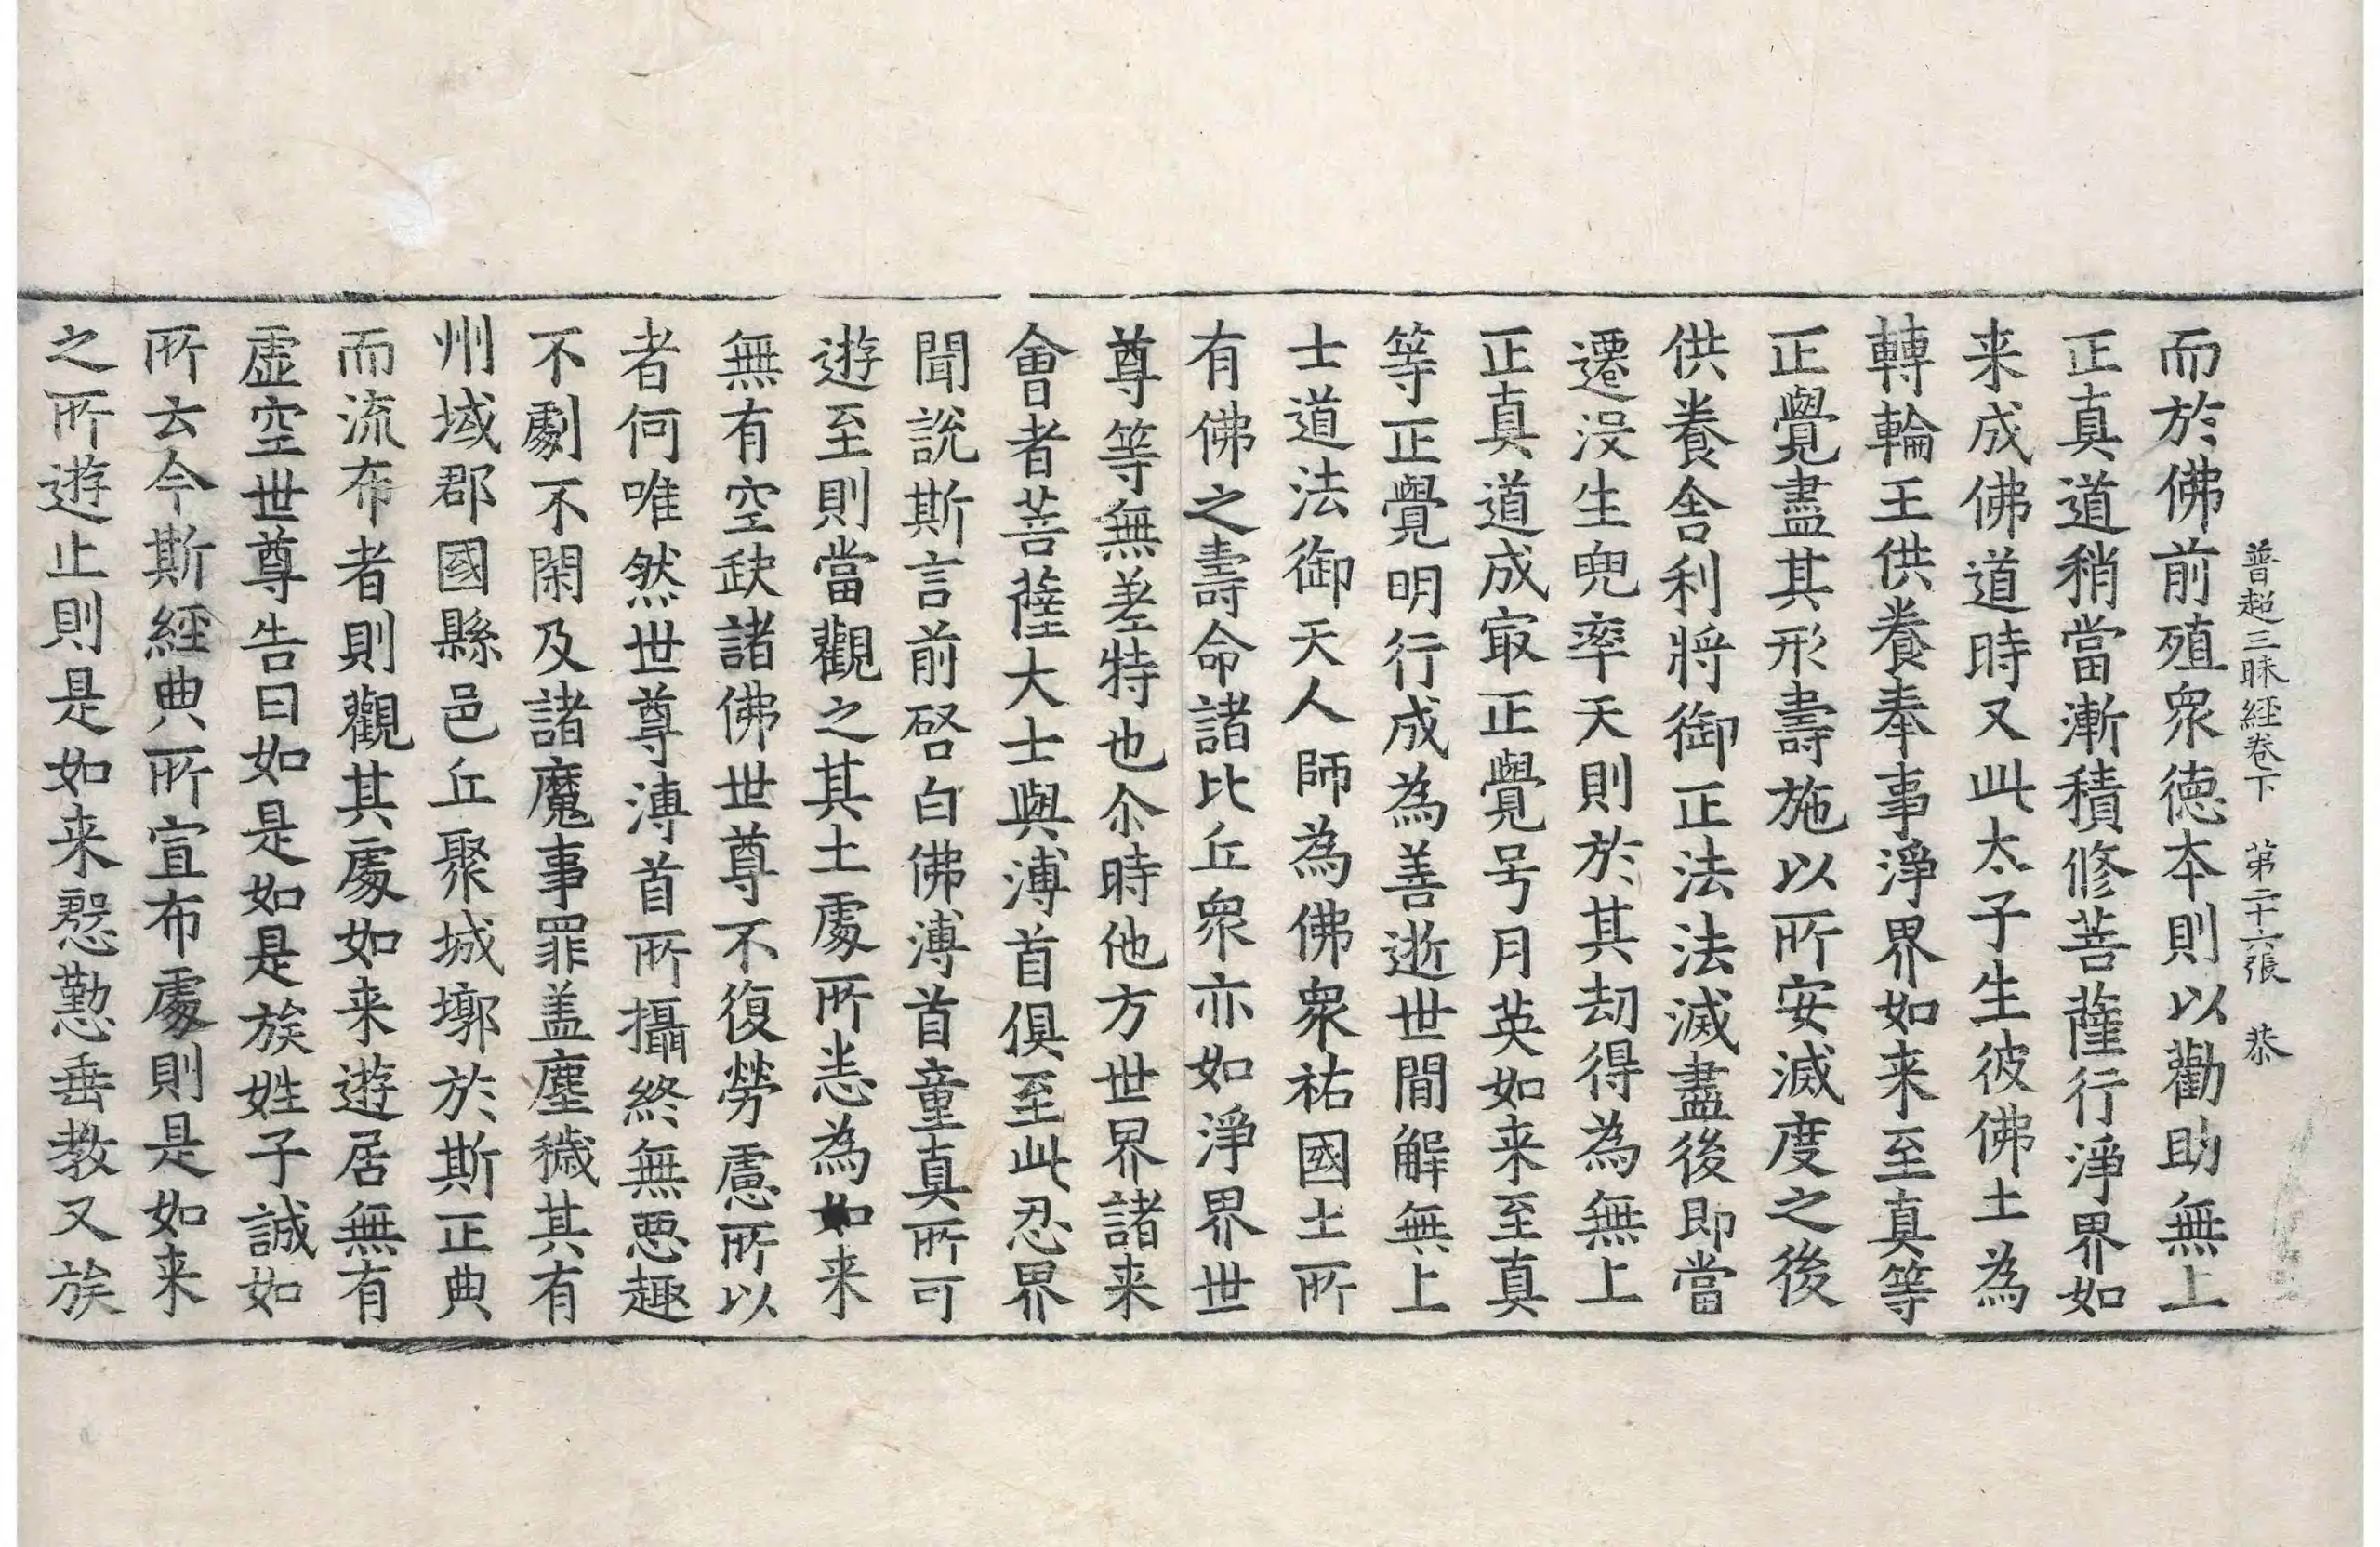 普超三昧経卷下　第二十六張　恭
而於佛前殖衆徳夲則以勸助無上
正真道稍當漸積修菩薩行淨界如
来成佛道時又此太子生彼佛土為
轉輪王供養奉事淨界如来至真等
正覺盡其形壽施以所安滅度之後
供養舎利將御正法法滅盡後即當
遷没生兜率天則於其刧得為無上
正真道成㝡正覺号月英如来至真
等正覺明行成為善逝世間解無上
士道法御天人師為佛衆祐國土所
有佛之壽命諸比丘衆亦如淨界世
尊等無差特也尒時他方世界諸来
會者菩薩大士與溥首俱至此忍界
聞說斯言前啓白佛溥首童真所可
遊至則當觀之其土處所恙為如来
無有空缺諸佛世尊不復勞慮所以
者何唯然世尊溥首所攝終無惡趣
不劇不閑及諸魔事罪盖塵穢其有
州域郡國縣邑丘聚城墎於斯正典
而流布者則觀其處如来遊居無有
虛空世尊告曰如是如是族姓子誠如
所云今斯經典所宣布處則是如来
之所遊止則是如来慇懃垂教又族